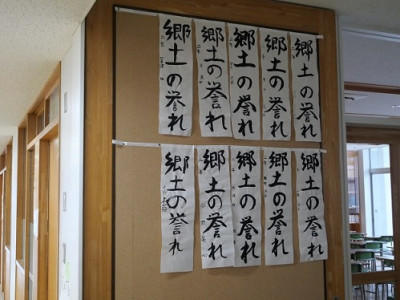 郷土の誉れ
郷土の誉れ
郷土の誉れ
郷土の誉れ
郷土の誉れ
郷土の誉れ
郷土の誉れ
郷土の誉れ
郷土の誉れ
郷土の誉れ